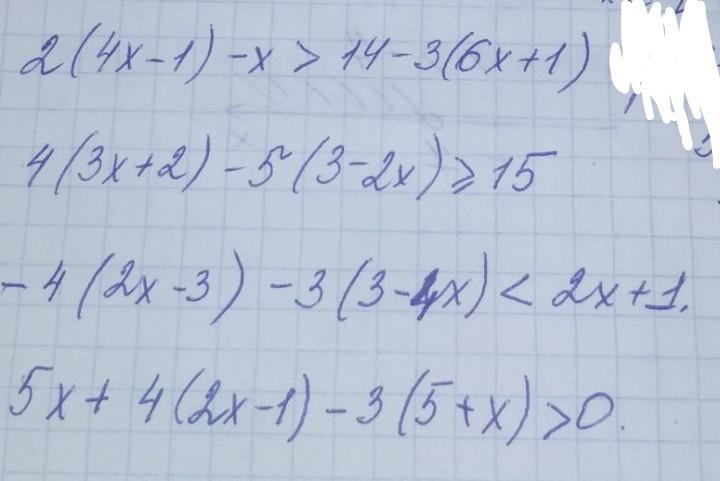 2(4x-1)-x > 14-3(6x+1)
4(3x+2)-5(3-2x)⩾15
-4(2x-3)-3(3-4x)< 2x+1.
5x+4(2x-1)-3(5+x)>0.